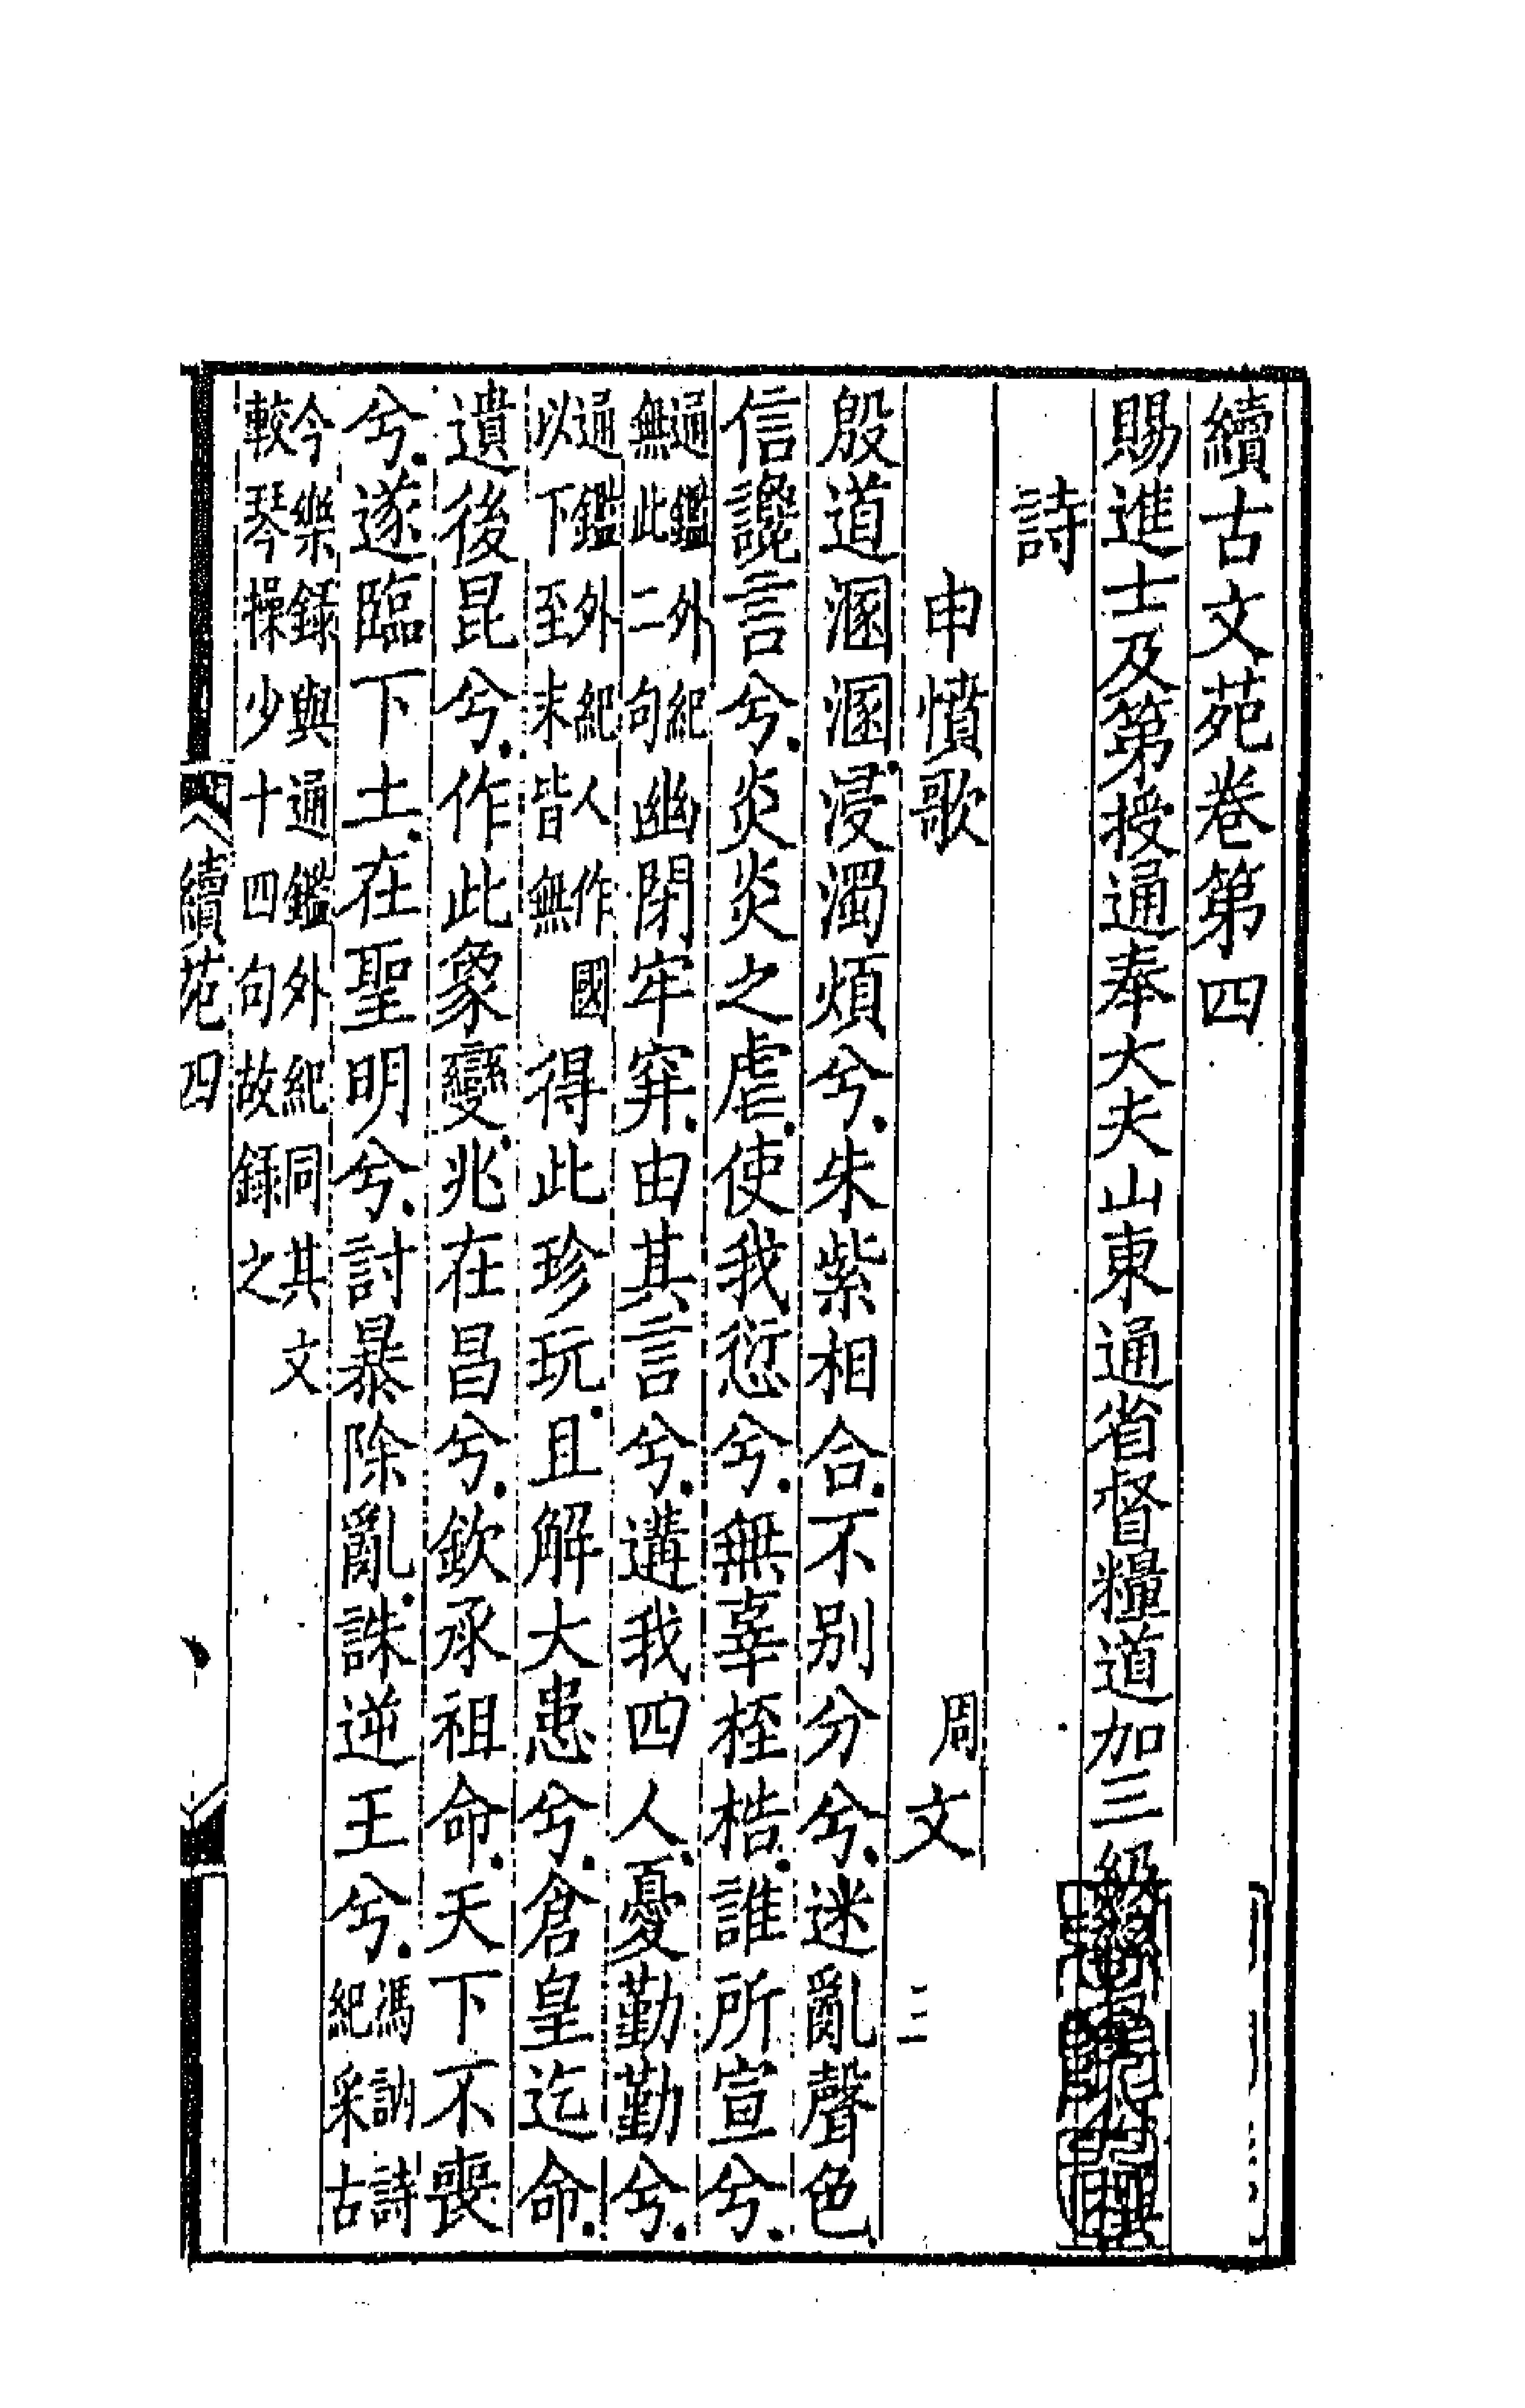 續古文苑卷第四
賜進士及第授通奉大夫山東通省督糧道加三級孫星衍撰
詩
申憤歌 周文
殷道溷溷浸濁煩兮朱紫相合不別分兮迷亂聲色
信讒言兮炎炎之虐使我愆兮無辜桎梏誰所宣兮
通鑑外紀無此二句幽閉牢穽由其言兮遘我四人憂勤勤兮
通鑑外紀人作國以下至末皆無得此珍玩且解大患兮倉皇迄命
遺後昆兮作此象變兆在昌兮欽承祖命天下不喪
兮遂臨下土在聖明兮討暴除亂誅逆王兮馮訥詩紀采古
今樂錄與通鑑外紀同其文較琴操少十四句故錄之
續苑四